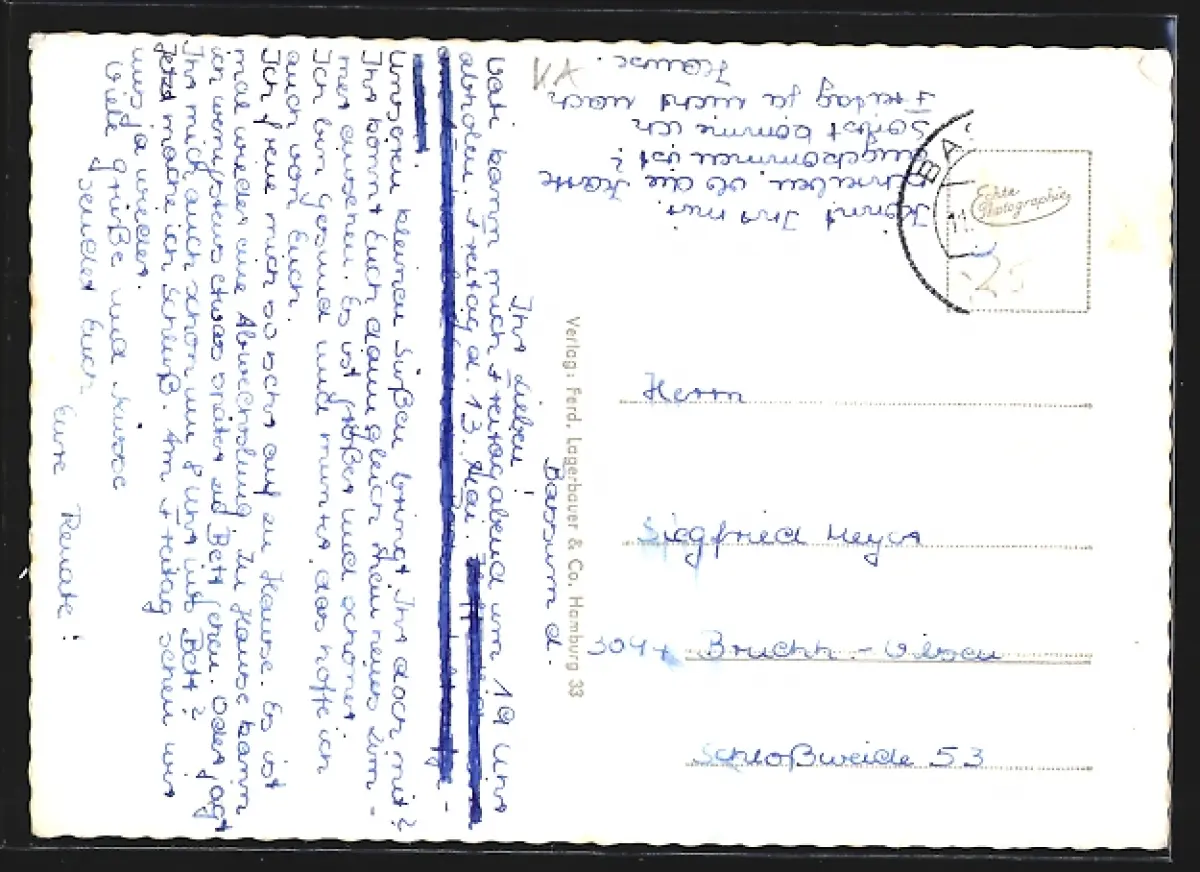 Bassum d.
Ihr Lieben!
Vati kann mich Freitagabend um 19 Uhr
abholen. Freitag d. 13. Mai.
Unseren kleinen Süßen bringt Ihr doch mit?
Ihr könnt Euch dann gleich mein neues Zim-
mer ansehen. Es ist größer und schöner.
Ich bin gesund und munter, das hoffe ich
auch von Euch.
Ich freue mich so sehr auf zu Hause. Es ist
mal wieder eine Abwechslung. Zu Hause kann
ich wenigstens etwas später zu Bett gehen. Oder jagt
Ihr mich auch schon um 9 Uhr ins Bett?
Jetzt mache ich Schluß. Am Freitag sehen wir
uns ja wieder.
Viele Grüße und Küsse
sendet Euch
Eure Renate!
Könnt Ihr mir
schreiben, ob die Karte
angekommen ist?
Sonst komme ich
Freitag ja nicht nach
Hause.
VA
BA
Echte
Photographie
25
Verlag: Ferd. Lagerbauer & Co. Hamburg 33
Herrn
Siegfried Meyer
Bruchh - Vilsen
Schloßweide 53